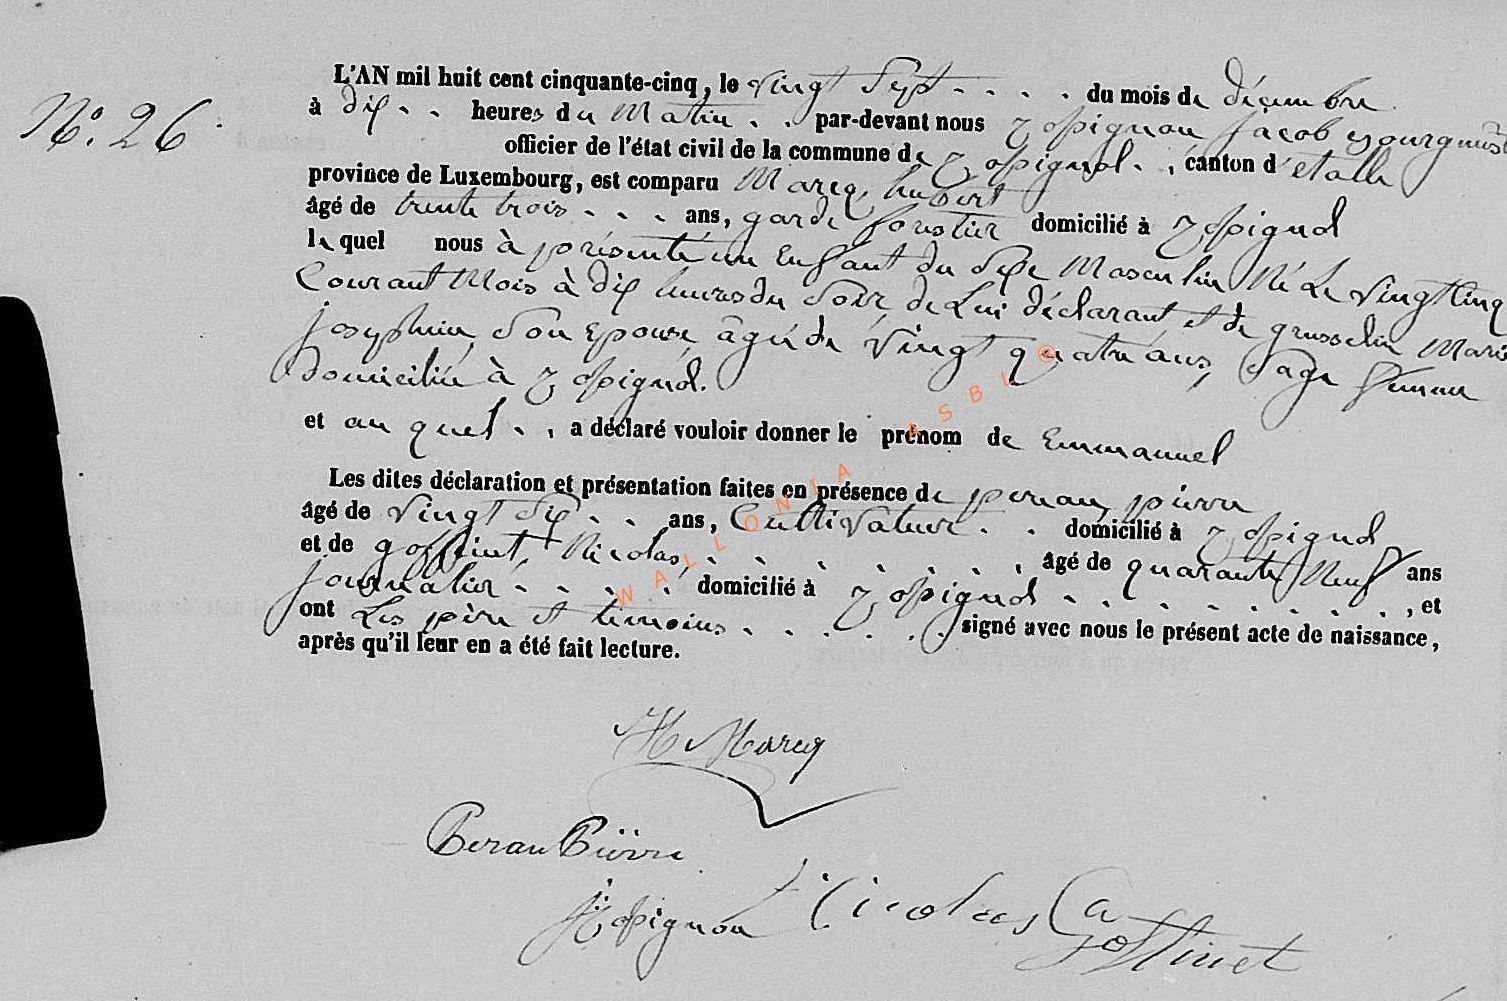 L'AN mil huit cent cinquante-cinq, le vingt Sept . . . . du mois de décembre
N°. 26.
à dix . . heures du Matin . . par-devant nous jacob Bourgmestre
officier de l'état civil de la commune de . , canton d'étalle
province de Luxembourg, est comparu Marcq, hubert
âgé de trente trois . . . ans, garde forestier domicilié à
lequel nous à présenté un Enfant du Sexe Masculin Né Le vingt Cinq
Courant Mois à dix heures du Soir, de Lui déclarant, et de grusselin Marie
josephine, Son Epouse âgée de vingt quatre ans, Sage femme
domiciliée à
et au quel . , a déclaré vouloir donner le prénom de Emmanuel
Les dites déclaration et présentation faites en présence de peran, pierre
âgé de vingt Six . . ans, Cultivateur . . domicilié à
et de goffinet, Nicolas, . . . . . . . , âgé de quarante Neuf ans
journalier . . . . domicilié à . . . . . . . . . , et
ont Les père et témoins . . . . . signé avec nous le présent acte de naissance,
après qu'il leur en a été fait lecture.
WALLONIA ASBL ©
H Marcq
Peran Pierre
Nicolas
Goffinet